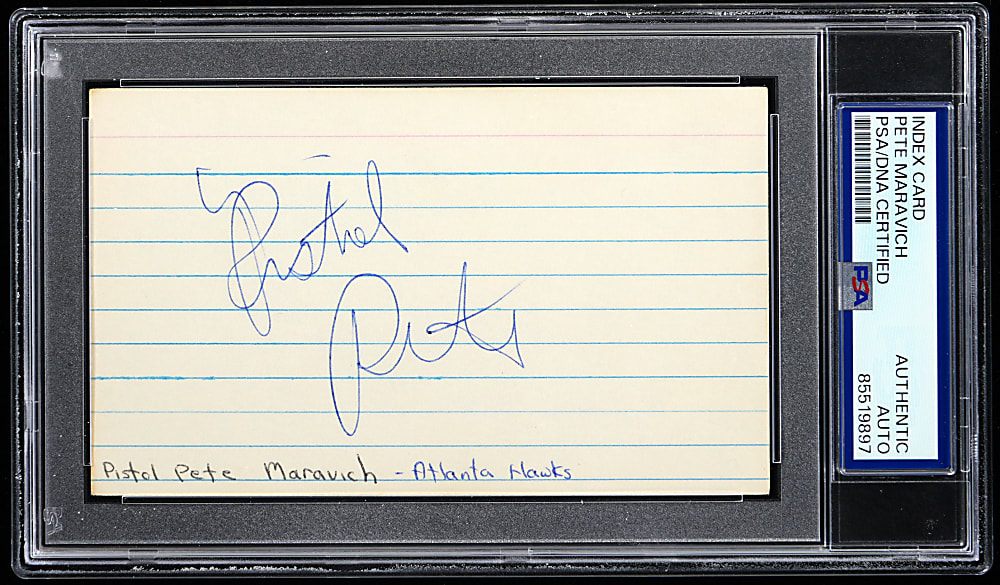 Pistol
Pete
Pistol Pete Maravich - Atlanta Hawks
INDEX CARD
PETE MARAVICH
PSA/DNA CERTIFIED
PSA
AUTHENTIC
AUTO
85519897